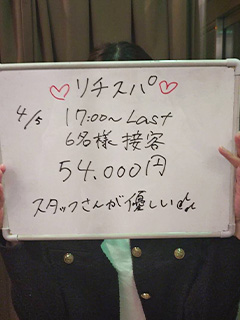 ♡リチスパ♡
4/5 17:00~Last
6名様接客
54.000円
スタッフさんが優しい